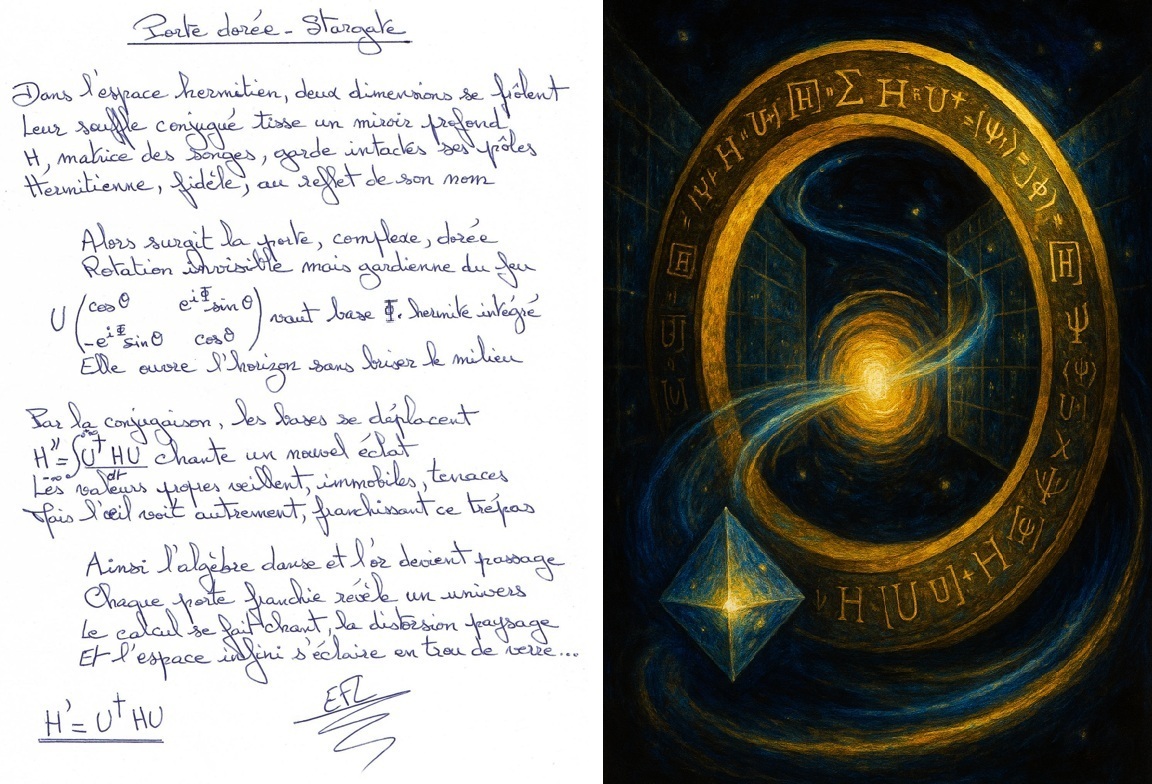 Porte dorée - Stargate
Dans l'espace hermitien, deux dimensions se frôlent
Leur souffle conjugué tisse un miroir profond
H, matrice des songes, garde intactes ses pôles
Hermitienne, fidèle, au reflet de son nom
Alors surgit la porte, complexe, dorée
Rotation invisible mais gardienne du feu
U ( cos θ e^{iΦ} sin θ
-e^{iΦ} sin θ cos θ ) vaut base Φ. hermite intégré
Elle ouvre l'horizon sans briser le milieu
Par la conjugaison, les bases se déplacent
H'' = ∫ U† HU chante un nouvel éclat
-∞ dt
Les valeurs propres veillent, immobiles, tenaces
Mais l'œil voit autrement, franchissant ce trépas
Ainsi l'algèbre danse et l'or devient passage
Chaque porte franchie révèle un univers
Le calcul se fait chant, la distorsion paysage
Et l'espace infini s'éclaire en trou de verre...
H' = U† HU
EFL
[H] " Σ H U†
[H]
Ψ
H [U